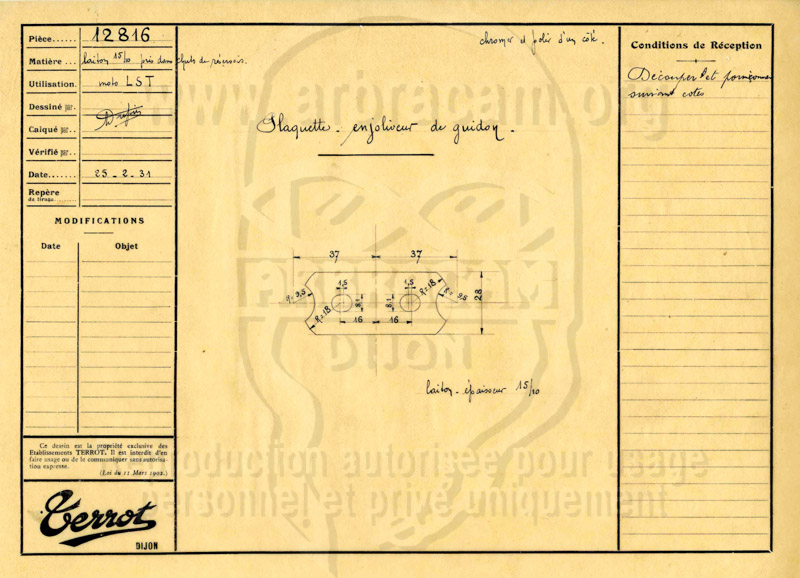 Pièce...... 12816
Matière... laiton 15/10 pris dans chute du réservoir.
Utilisation. moto LST
Dessiné par.
Calqué par.
Vérifié par.
Date....... 25-2-31
Repère
de tirage
MODIFICATIONS
Date Objet
Ce dessin est la propriété exclusive des
Etablissements TERROT. Il est interdit d'en
faire usage ou de le communiquer sans autorisa-
tion expresse.
(Loi du 11 Mars 1902.)
Terrot
DIJON
chromer et polir d'un côté.
Plaquette - enjoliveur de guidon -
37 37
1,5 1,5
R=9,5 R=18 8,1 8,1 R=18 R=9,5
16 16
28
laiton - épaisseur 15/10
Conditions de Réception
Découper et poinçonner
suivant cotes
www.arbracam.org
ARBRACAM
DIJON
Reproduction autorisée pour usage
personnel et privé uniquement